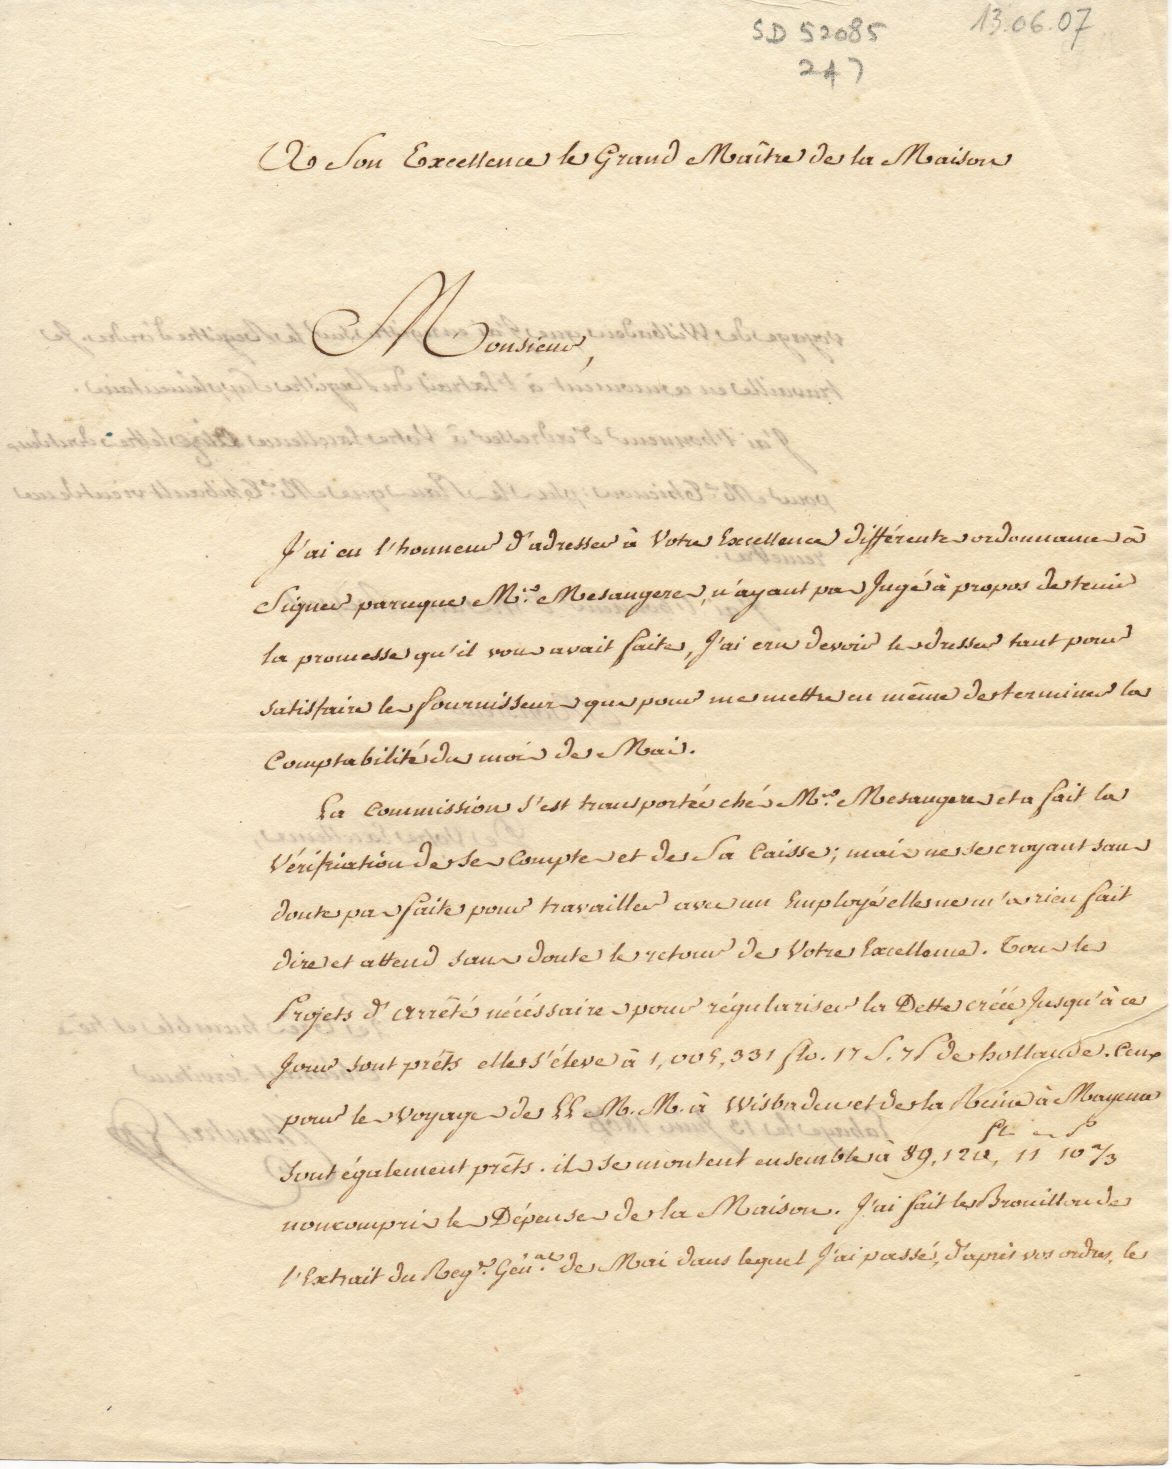 SD 52085
247
13.06.07
A Son Excellence le Grand Maître de la Maison
Monsieur,
J'ai eu l'honneur d'adresser à Votre Excellence différentes ordonnances à
Signer parceque Mr. Mesangere, n'ayant pas Jugé à propos de tenir
la promesse qu'il vous avait faite, J'ai cru devoir les dresser tant pour
satisfaire les fournisseurs que pour me mettre en même de terminer la
Comptabilité du mois de Mai.
La Commission s'est transportée chés Mr. Mesangere et a fait la
Vérification de ses Comptes et de Sa Caisse; mais ne se croyant sans
doute pas faite pour travailler avec un Employé elle ne m'a rien fait
dire et attend sans doute le retour de Votre Excellence. Tous les
Projets d'Arrêtés nécéssaires pour régulariser la Dette créée Jusqu'à ce
Jour sont prêts elle s'éleve à 1,005,331 flo. 17 S. 7 P de hollande. Ceux
pour les Voyages de LL M. M. à Wisbaden et de la Reine à Mayence
sont également prêts. ils se montent ensemble à 89,120, 11 10 2/3
non compris les Dépenses de la Maison. J'ai fait le Brouillon de
l'Extrait du Regre. Génal. de Mai dans lequel J'ai passé, d'après vos ordres, le